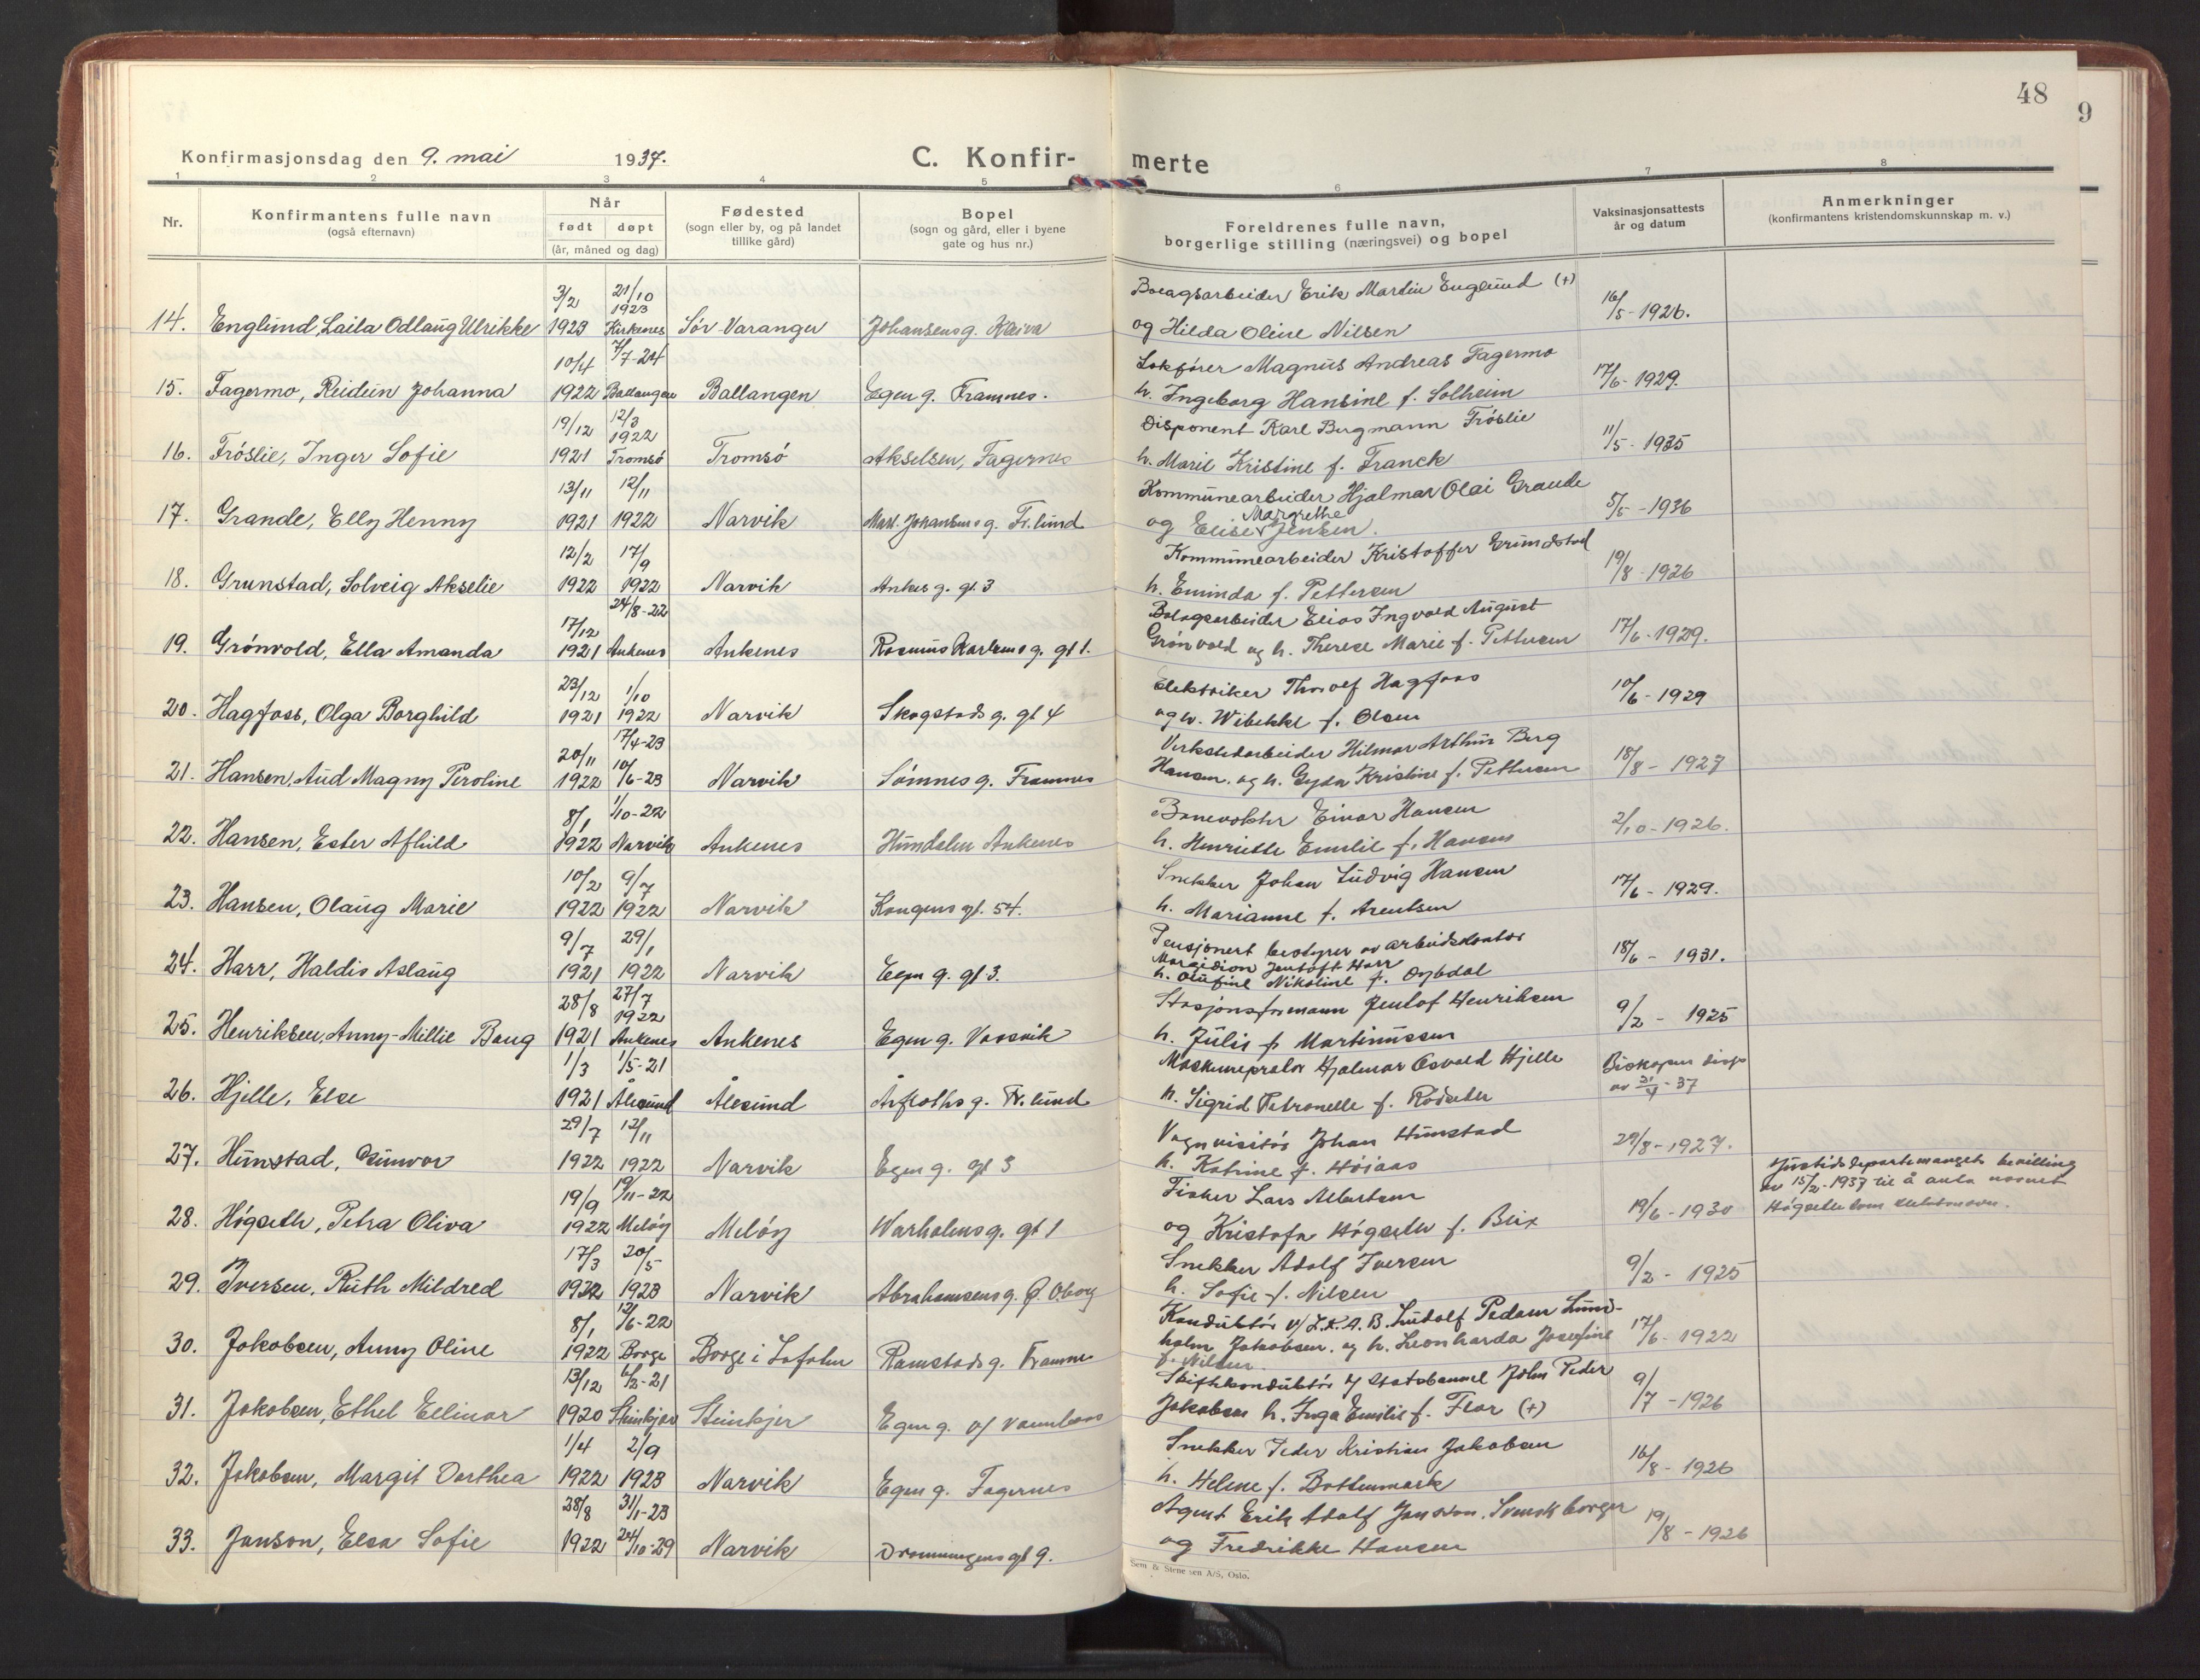 48
9
Konfirmasjonsdag den 9. mai 1937.
C. Konfir-
merte
1 2 3 4 5 6 7 8
Nr.
Konfirmantens fulle navn
(også efternavn)
Når
født døpt
(år, måned og dag)
Fødested
(sogn eller by, og på landet
tillike gård)
Bopel
(sogn og gård, eller i byene
gate og hus nr.)
Foreldrenes fulle navn,
borgerlige stilling (næringsvei) og bopel
Vaksinasjonsattests
år og datum
Anmerkninger
(konfirmantens kristendomskunnskap m. v.)
3/2 21/10 1923 Erik Martin Englund (+)
14. Englund, Laila Odlaug Ulrikke 1923 Kirkenes Sör-Varanger Johansens g. 16/5-1926.
og Hilda Oline Nilsen
10/4 7/7-24 Lokfører Magnus Andreas Fagermo
15. Fagermo, Reidun Johanna 1922 Ballangen Ballangen Egen g. Framnes. 17/6-1929.
h. Ingeborg Hansine f. Solheim
19/12 12/3 1922 Disponent Karl Bergmann Fröslie
16. Fröslie, Inger Sofie 1921 Tromsö Tromsö Akselsen, Fagernes 11/5-1935
h. Marie Kristine f. Franck
13/11 12/11 Kommunearbeider Hjalmar Olai Grande
17. Grande, Elly Henny 1921 1922 Narvik Mart. Johansens g. Fr.lund 5/5-1936
Margrethe
og Elise Jensen.
12/2 17/9 Kommunearbeider Kristoffer Grundstad
18. Grunstad, Solveig Akselie 1922 1922 Narvik Ankes g. gt. 3 19/8-1926
h. Eminda f. Pettersen
17/12 24/8-22 Bolagsarbeider Elias Ingvald August
19. Grönvold, Ella Amanda 1921 Ankenes Ankenes Rasmus Karlsens g. gt 1. 17/6-1929.
Grönvold og h. Therese Marie f. Pettersen
23/12 1/10 Elektriker Thorolf Hagfoss
20. Hagfoss, Olga Borghild 1921 1922 Narvik Skogstads g. gt 4 10/6-1929
og h. Wibekke f. Olsen
20/11 17/4-23 Verkstedarbeider Hilmar Arthur Berg
21. Hansen, Aud Magny Peroline 1922 10/6-23 Narvik Sömnes g. Framnes 18/8-1927
Hansen. og h. Gyda Kristine f. Pettersen
8/1 1/10-22 Banevokter Einar Hansen
22. Hansen, Ester Afhild 1922 Narvik Ankenes Hundalen Ankenes 2/10-1926.
h. Henriette Emilie f. Hansen
10/2 9/7 Snekker Johan Ludvig Hansen
23. Hansen, Olaug Marie 1922 1922 Narvik Kongens gt. 54. 17/6-1929.
h. Marianne f. Arentsen
9/7 29/1 Pensjonert bestyrer av arbeidskontor
24. Harr, Haldis Aslaug 1921 1922 Narvik Egen g. gt 3. 18/6-1931.
Jentoft Harr
h. Olufine Nikoline f. Oybdal
28/8 27/7 1922 Stasjonsformann Jentof Henriksen
25. Henriksen, Anny-Millie Baug 1921 Ankenes Ankenes Egen g. Vassvik 9/2-1925
h. Julie f. Martinussen
1/3 1/5-21 Hjalmar Osvald Hjelle
26. Hjelle, Else 1921 Ålesund Ålesund Arfloths g. Fr.lund Biskopens disp
h. Sigrid Petronelle f. Rödseter
29/7 12/11 Vognvisitör Johan Hunstad
27. Hunstad, Gunvor 1922 1922 Narvik Egen g. gt 3 29/8-1927.
h. Katrine f. Höiaas
19/9 19/11-22 Fisker Lars Albertsen
28. Högseth, Petra Oliva 1922 Melöy Melöy Warholms g. gt 1 19/6-1930
og Kristofa Högseth f. Blix
Justisdepartemangets bevilling
av 15/2-1937 til å anta navnet
Högseth som slektsnavn.
17/3 20/5 Snekker Adolf Iversen
29. Iversen, Ruth Mildred 1922 1923 Narvik Abrahamsens g. 9/2-1925
h. Sofie f. Nilsen
8/1 12/6-22 Konduktör v/ L.K.A.B. Ludolf Pedar Lund-
30. Jakobsen, Anny Oline 1922 Borge Borge i Lofoten Ramstads g. Framnes 17/6-1922
holm Jakobsen. og h. Leonharda Josefine
f. Nilsen.
13/12 6/2-21 Skiftekonduktör v/ Statsbanene John Peder
31. Jakobsen, Ethel Ellinor 1920 Steinkjer Steinkjer Egen g. 9/7-1926
Jakobsen h. Inga Emilie f. Flor (+)
1/4 2/9 Snekker Peder Kristian Jakobsen
32. Jakobsen, Margit Dorthea 1922 1923 Narvik Egen g. Fagernes 16/8-1926
h. Helene f. Bottenmark
28/8 31/1-23 Agent Erik Adolf Jansson. Svensk borger
33. Janson, Elsa Sofie 1922 24/10-29 Narvik Dronningens gt 9. 19/8-1926
og Fredrikke Hansen
Sem & Stenersen A/S, Oslo.